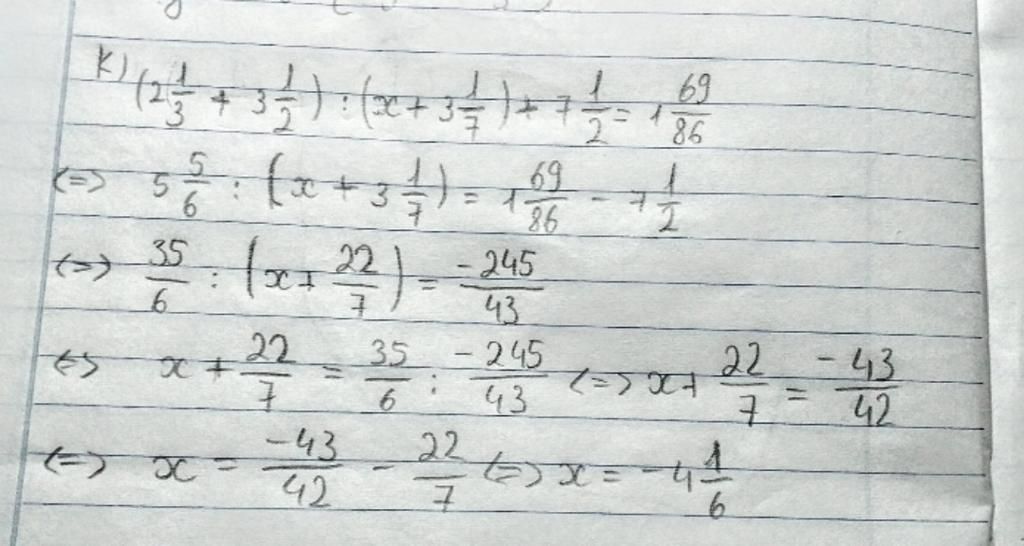 K) (2 1/3 + 3 1/2) : (x + 3 1/7) + 7 1/2 = 1 69/86
<=> 5 5/6 : (x + 3 1/7) = 1 69/86 - 7 1/2
<=> 35/6 : (x + 22/7) = -245/43
<=> x + 22/7 = 35/6 : -245/43 <=> x + 22/7 = -43/42
<=> x = -43/42 - 22/7 <=> x = -4 1/6